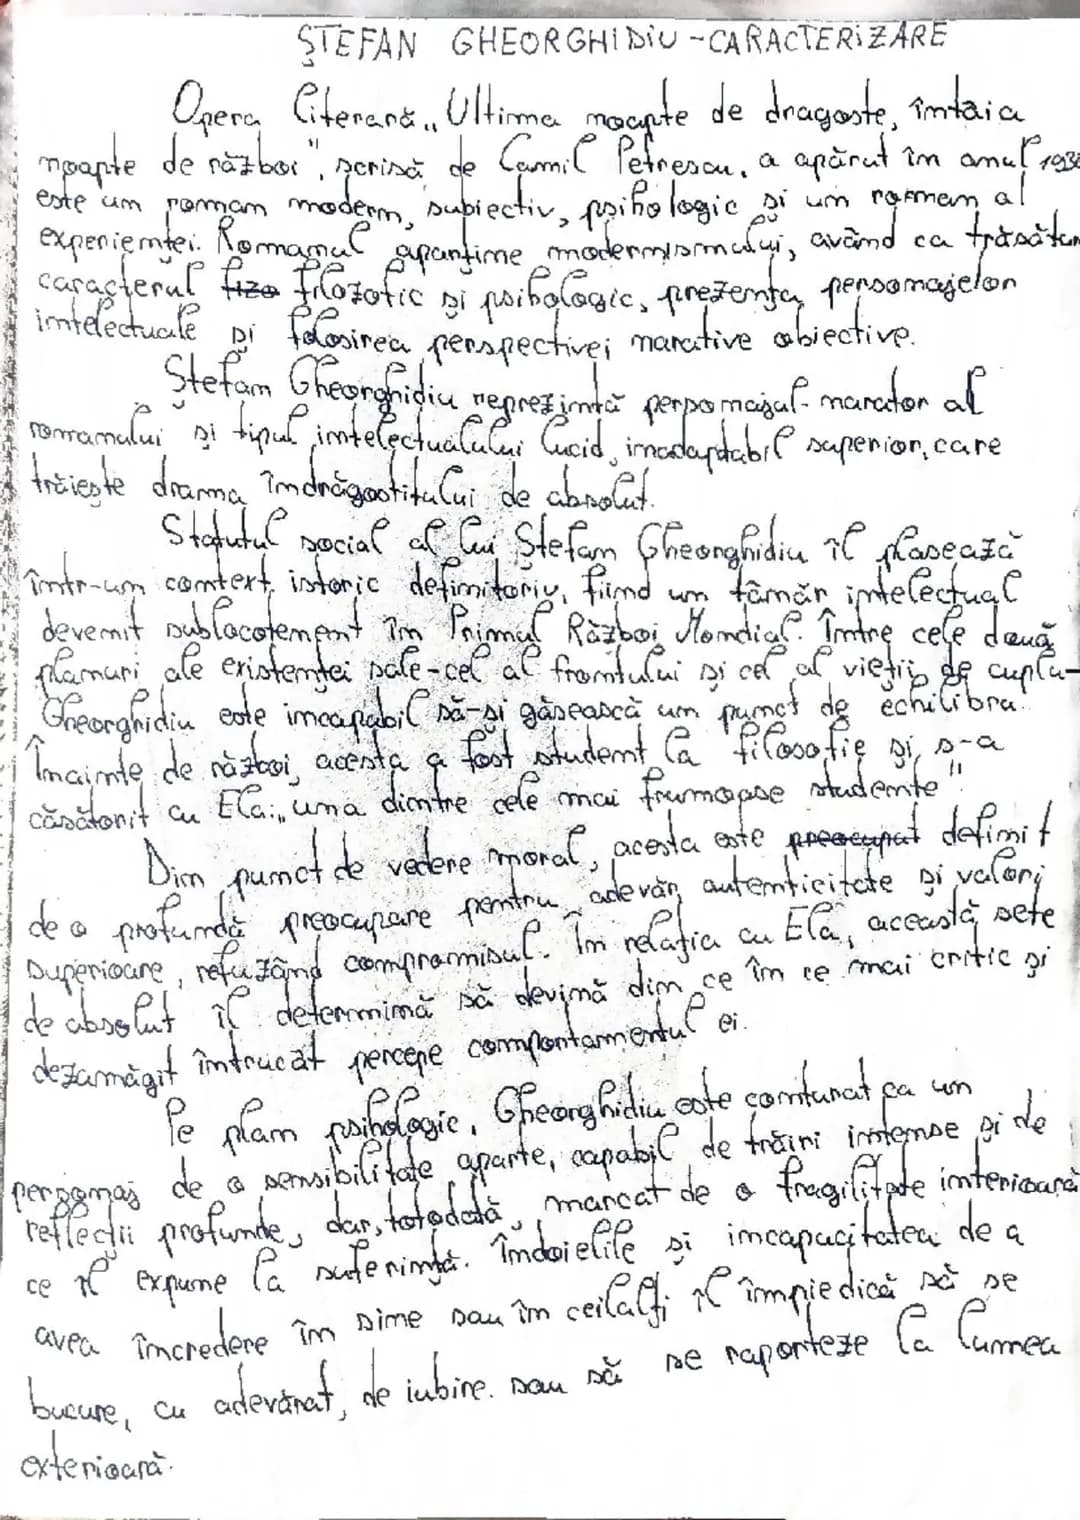 ȘTEFAN GHEORGHIDIU - CARACTERIZARE
Opera literară „Ultima noapte de dragoste, întâia
noapte de război", scrisă de Camil Petrescu, a apărut în anul
este un roman modern, subiectiv, psihologic și un roman al
experienței. Romanul aparține modernismului, având ca trăsături
caracterul filozofic și psihologic, prezența personajelor
intelectuale și folosirea perspectivei narative obiective.
Ștefan Gheorghidiu reprezintă personajul-narator al
romanului și tipul intelectualului lucid, inadaptabil superior, care
trăiește drama îndrăgostitului de absolut.
Statutul social al lui Ștefan Gheorghidiu îl plasează
într-un context istoric definitoriu, fiind un tânăr intelectual
devenit sublocotenent în Primul Război Mondial. Între cele două
planuri ale existenței sale-cel al frontului și cel al vieții de cuplu-
Gheorghidiu este incapabil să-și găsească un punct de echilibru.
Înainte de război, acesta a fost student la filosofie și s-a
căsătorit cu Ela: „una dintre cele mai frumoase studente".
Din punct de vedere moral, acesta este preocupat definit
de o profundă preocupare pentru adevăr, autenticitate și valori
superioare, refuzând compromisul. În relația cu Ela, această sete
de absolut îl determină să devină din ce în ce mai critic și
dezamăgit întrucât percepe comportamentul ei.
Pe plan psihologic, Gheorghidiu este conturat ca un
personaj de o sensibilitate aparte, capabil de trăiri intense și de
reflecții profunde, dar, totodată, marcat de o fragilitate interioară
ce îl expune la suferință. Îndoielile și incapacitatea de a
avea încredere în sine sau în ceilalți îl împiedică să se
bucure, cu adevărat, de iubire. sau să se raporteze la lumea
exterioară.